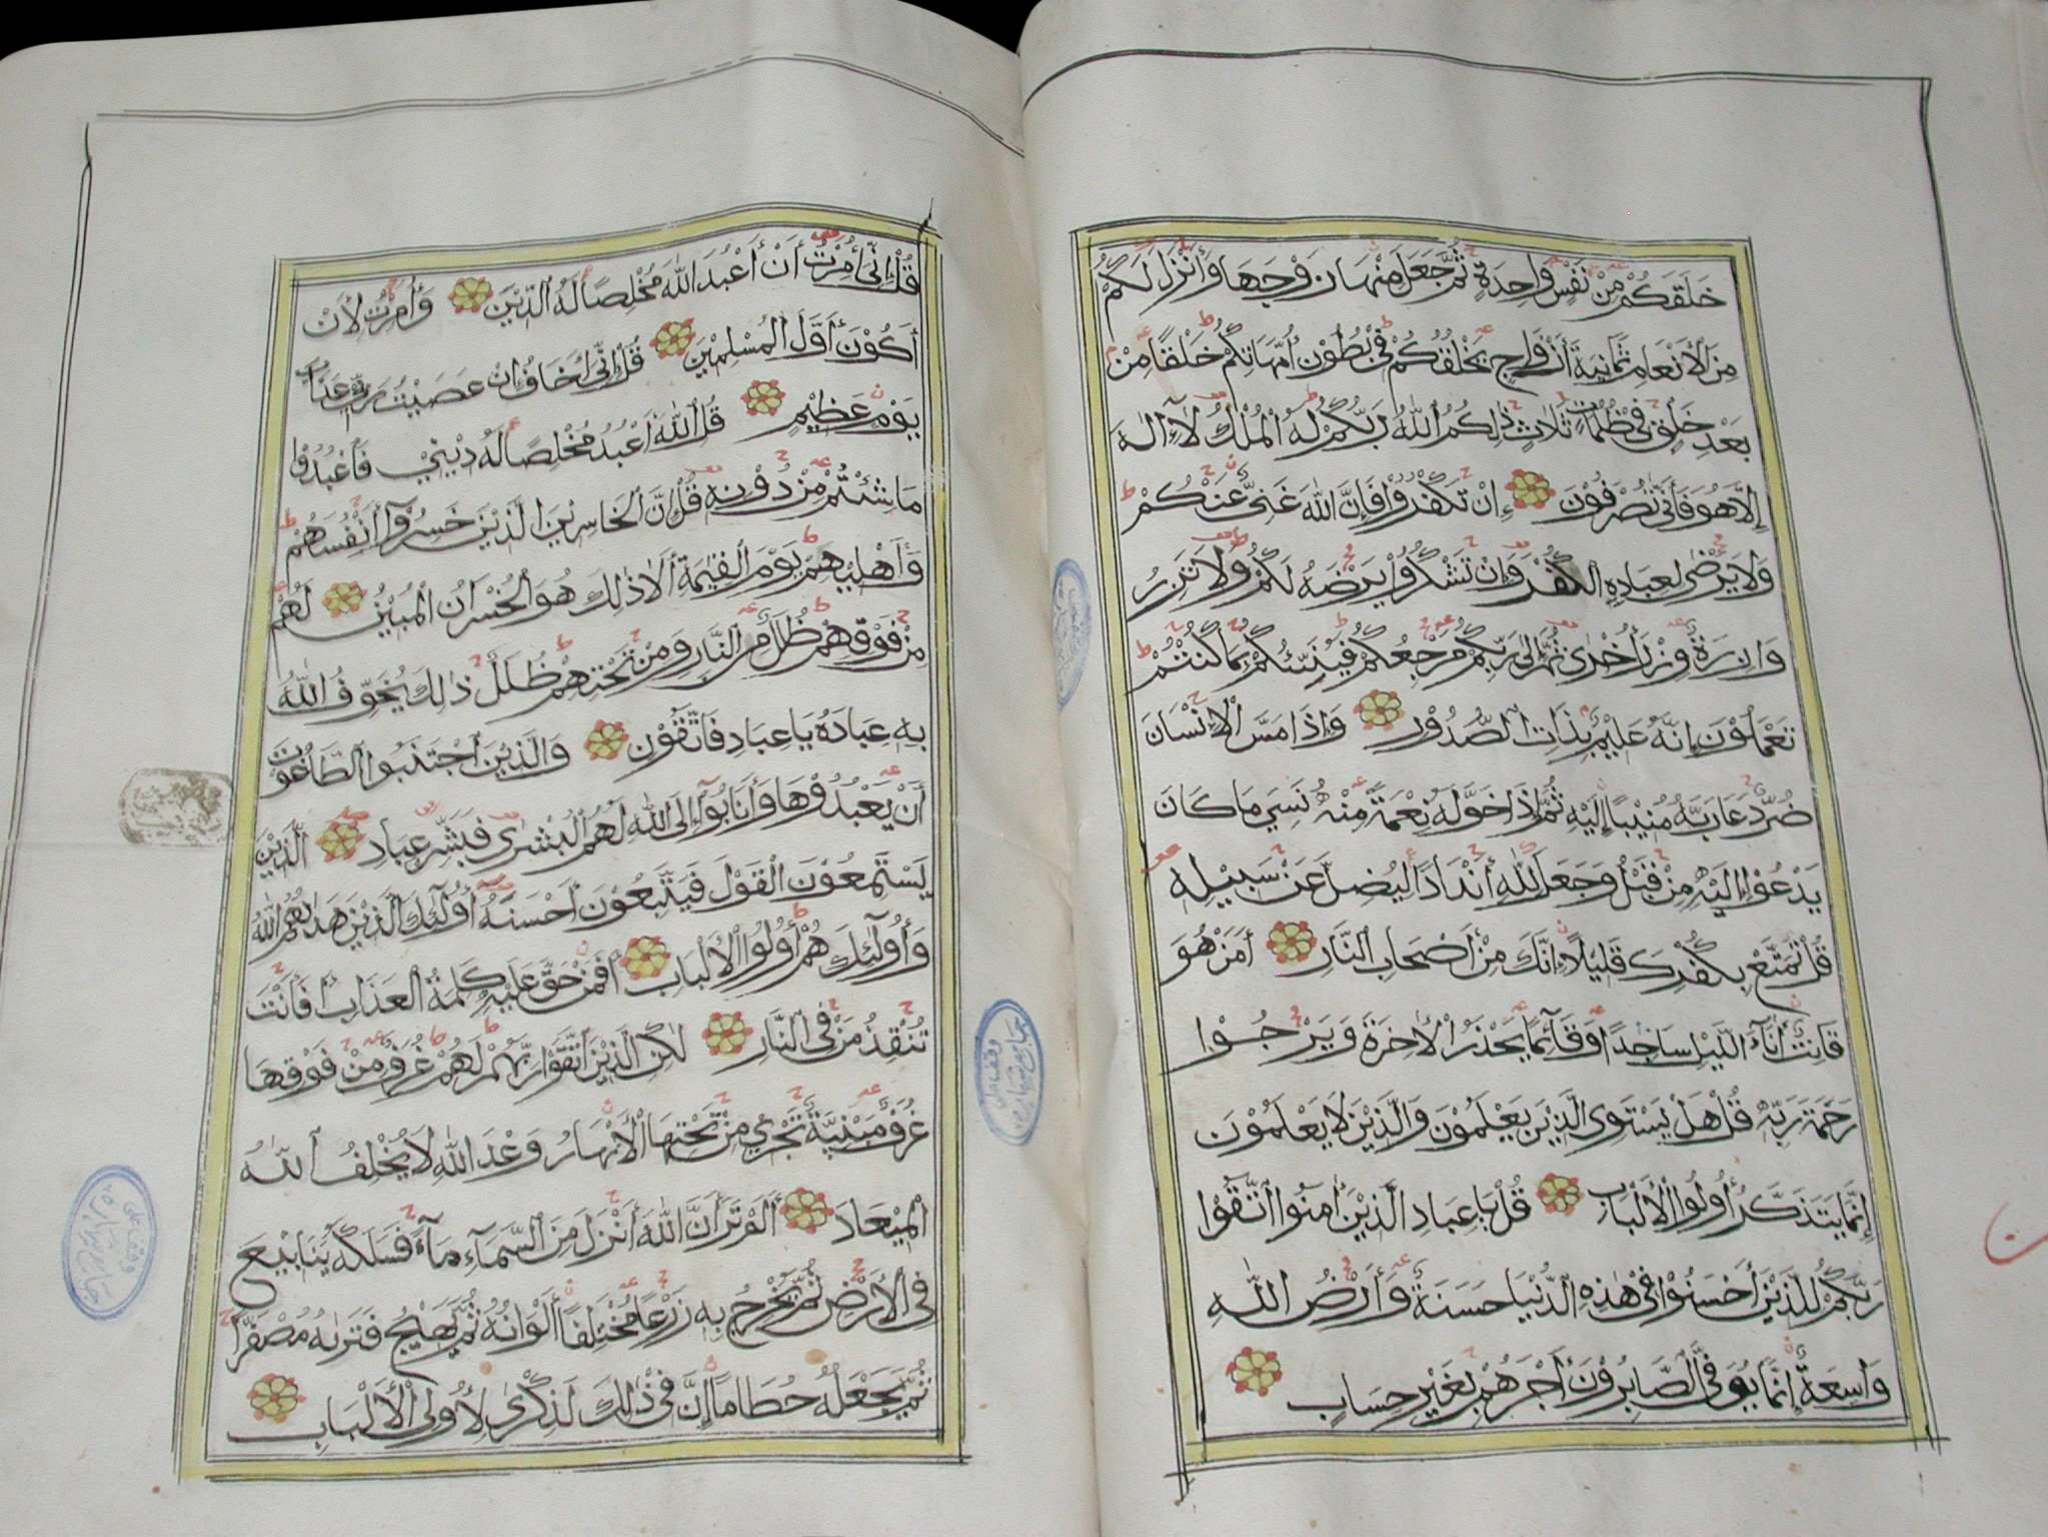 خَلَقَكُمْ مِنْ نَفْسٍ وَاحِدَةٍ ثُمَّ جَعَلَ مِنْهَا زَوْجَهَا وَأَنْزَلَ لَكُمْ
مِنَ الْأَنْعَامِ ثَمَانِيَةَ أَزْوَاجٍ يَخْلُقُكُمْ فِي بُطُونِ أُمَّهَاتِكُمْ خَلْقًا مِنْ
بَعْدِ خَلْقٍ فِي ظُلُمَاتٍ ثَلَاثٍ ذٰلِكُمُ اللّٰهُ رَبُّكُمْ لَهُ الْمُلْكُ لَآ اِلٰهَ
إِلَّا هُوَ فَأَنّٰى تُصْرَفُونَ إِنْ تَكْفُرُوا فَإِنَّ اللّٰهَ غَنِيٌّ عَنْكُمْ
وَلَا يَرْضٰى لِعِبَادِهِ الْكُفْرَ وَإِنْ تَشْكُرُوا يَرْضَهُ لَكُمْ وَلَا تَزِرُ
وَازِرَةٌ وِزْرَ أُخْرٰى ثُمَّ إِلٰى رَبِّكُمْ مَرْجِعُكُمْ فَيُنَبِّئُكُمْ بِمَا كُنْتُمْ
تَعْمَلُونَ إِنَّهُ عَلِيمٌ بِذَاتِ الصُّدُورِ وَإِذَا مَسَّ الْإِنْسَانَ
ضُرٌّ دَعَا رَبَّهُ مُنِيبًا إِلَيْهِ ثُمَّ إِذَا خَوَّلَهُ نِعْمَةً مِنْهُ نَسِيَ مَا كَانَ
يَدْعُوٓا إِلَيْهِ مِنْ قَبْلُ وَجَعَلَ لِلّٰهِ أَنْدَادًا لِيُضِلَّ عَنْ سَبِيلِهِ
قُلْ تَمَتَّعْ بِكُفْرِكَ قَلِيلًا إِنَّكَ مِنْ أَصْحَابِ النَّارِ أَمَّنْ هُوَ
قَانِتٌ أٰنَآءَ اللَّيْلِ سَاجِدًا وَقَآئِمًا يَحْذَرُ الْاٰخِرَةَ وَيَرْجُوا
رَحْمَةَ رَبِّهِ قُلْ هَلْ يَسْتَوِى الَّذِينَ يَعْلَمُونَ وَالَّذِينَ لَا يَعْلَمُونَ
إِنَّمَا يَتَذَكَّرُ أُولُوا الْأَلْبَابِ قُلْ يَا عِبَادِ الَّذِينَ اٰمَنُوا اتَّقُوا
رَبَّكُمْ لِلَّذِينَ أَحْسَنُوا فِي هٰذِهِ الدُّنْيَا حَسَنَةٌ وَأَرْضُ اللّٰهِ
وَاسِعَةٌ إِنَّمَا يُوَفَّى الصَّابِرُونَ أَجْرَهُمْ بِغَيْرِ حِسَابٍ
قُلْ إِنِّي أُمِرْتُ أَنْ أَعْبُدَ اللّٰهَ مُخْلِصًا لَهُ الدِّينَ وَأُمِرْتُ لِأَنْ
أَكُونَ أَوَّلَ الْمُسْلِمِينَ قُلْ إِنِّي أَخَافُ إِنْ عَصَيْتُ رَبِّي عَذَابَ
يَوْمٍ عَظِيمٍ قُلِ اللّٰهَ أَعْبُدُ مُخْلِصًا لَهُ دِينِي فَاعْبُدُوا
مَا شِئْتُمْ مِنْ دُونِهِ قُلْ إِنَّ الْخَاسِرِينَ الَّذِينَ خَسِرُوٓا أَنْفُسَهُمْ
وَأَهْلِيهِمْ يَوْمَ الْقِيٰمَةِ أَلَا ذٰلِكَ هُوَ الْخُسْرَانُ الْمُبِينُ لَهُمْ
مِنْ فَوْقِهِمْ ظُلَلٌ مِنَ النَّارِ وَمِنْ تَحْتِهِمْ ظُلَلٌ ذٰلِكَ يُخَوِّفُ اللّٰهُ
بِهِ عِبَادَهُ يَا عِبَادِ فَاتَّقُونِ وَالَّذِينَ اجْتَنَبُوا الطَّاغُوتَ
أَنْ يَعْبُدُوهَا وَأَنَابُوٓا إِلَى اللّٰهِ لَهُمُ الْبُشْرٰى فَبَشِّرْ عِبَادِ الَّذِينَ
يَسْتَمِعُونَ الْقَوْلَ فَيَتَّبِعُونَ أَحْسَنَهُ أُولٰٓئِكَ الَّذِينَ هَدٰىهُمُ اللّٰهُ
وَأُولٰٓئِكَ هُمْ أُولُوا الْأَلْبَابِ أَفَمَنْ حَقَّ عَلَيْهِ كَلِمَةُ الْعَذَابِ أَفَأَنْتَ
تُنْقِذُ مَنْ فِي النَّارِ لٰكِنِ الَّذِينَ اتَّقَوْا رَبَّهُمْ لَهُمْ غُرَفٌ مِنْ فَوْقِهَا
غُرَفٌ مَبْنِيَّةٌ تَجْرِي مِنْ تَحْتِهَا الْأَنْهَارُ وَعْدَ اللّٰهِ لَا يُخْلِفُ اللّٰهُ
الْمِيعَادَ أَلَمْ تَرَ أَنَّ اللّٰهَ أَنْزَلَ مِنَ السَّمَآءِ مَآءً فَسَلَكَهُ يَنَابِيعَ
فِي الْأَرْضِ ثُمَّ يُخْرِجُ بِهِ زَرْعًا مُخْتَلِفًا أَلْوَانُهُ ثُمَّ يَهِيجُ فَتَرٰىهُ مُصْفَرًّا
ثُمَّ يَجْعَلُهُ حُطَامًا إِنَّ فِي ذٰلِكَ لَذِكْرٰى لِأُولِى الْأَلْبَابِ